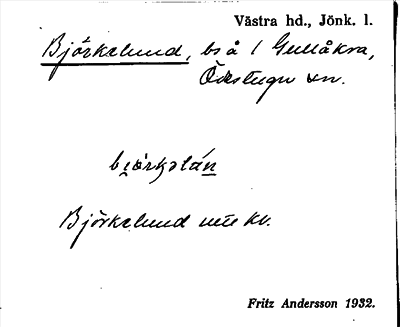 Västra hd., Jönk. l.
Björkelund, bs å 1 Gullåkra,
Ödestugu sn.
Björkelund
Fritz Andersson 1932.